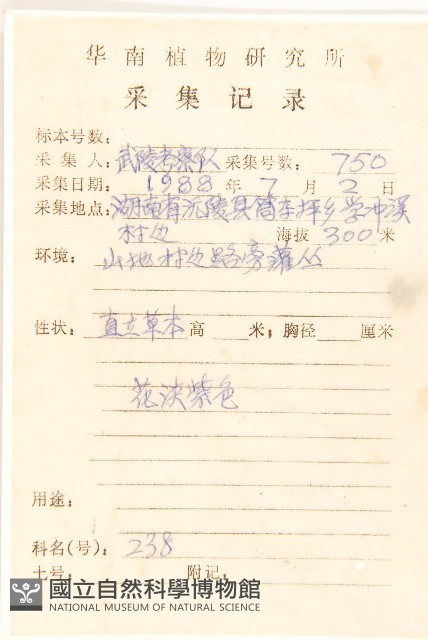 华南植物研究所
采集记录
标本号数:
采集人: 武陵考察队 采集号数: 750
采集日期: 1988 年 7 月 2 日
采集地点: 湖南省沅陵县 坪乡 溪
村边 海拔 300 米
环境: 山地村边路旁灌丛
性状: 直立草本 高 米; 胸径 厘米
花淡紫色
用途:
科名(号): 238
土号: 附记:
國立自然科學博物館
NATIONAL MUSEUM OF NATURAL SCIENCE